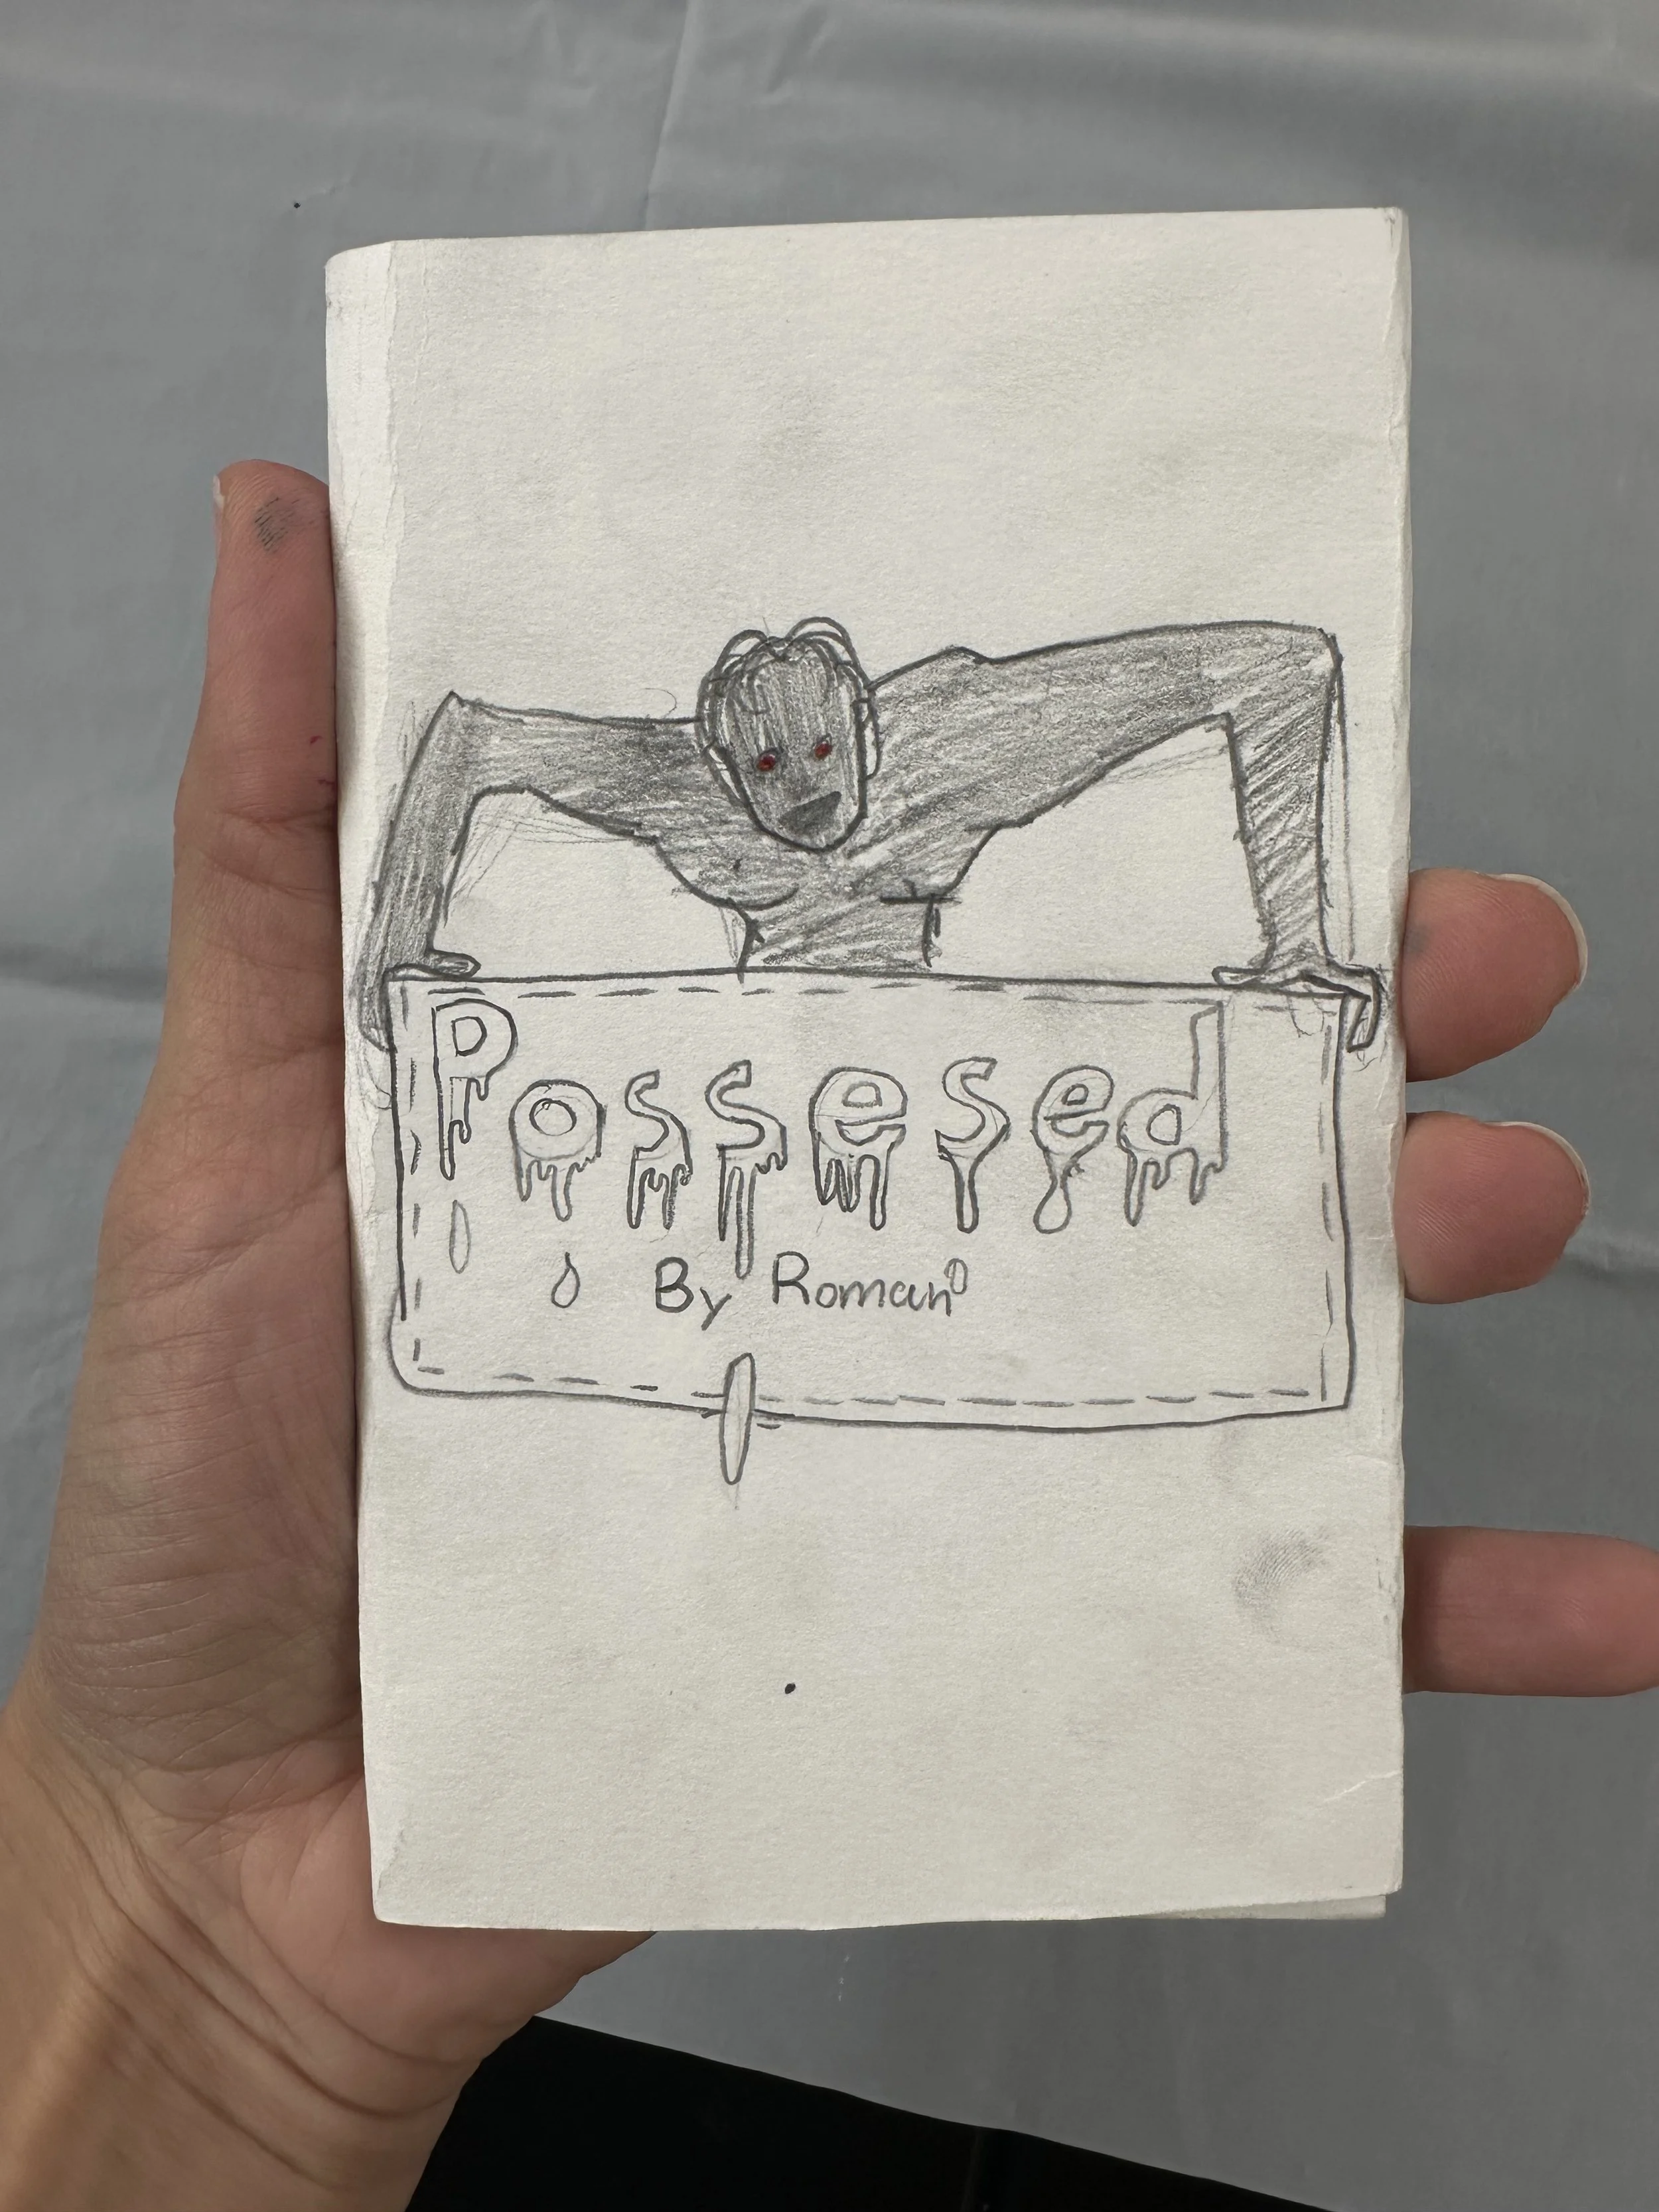 Possesed
By Roman